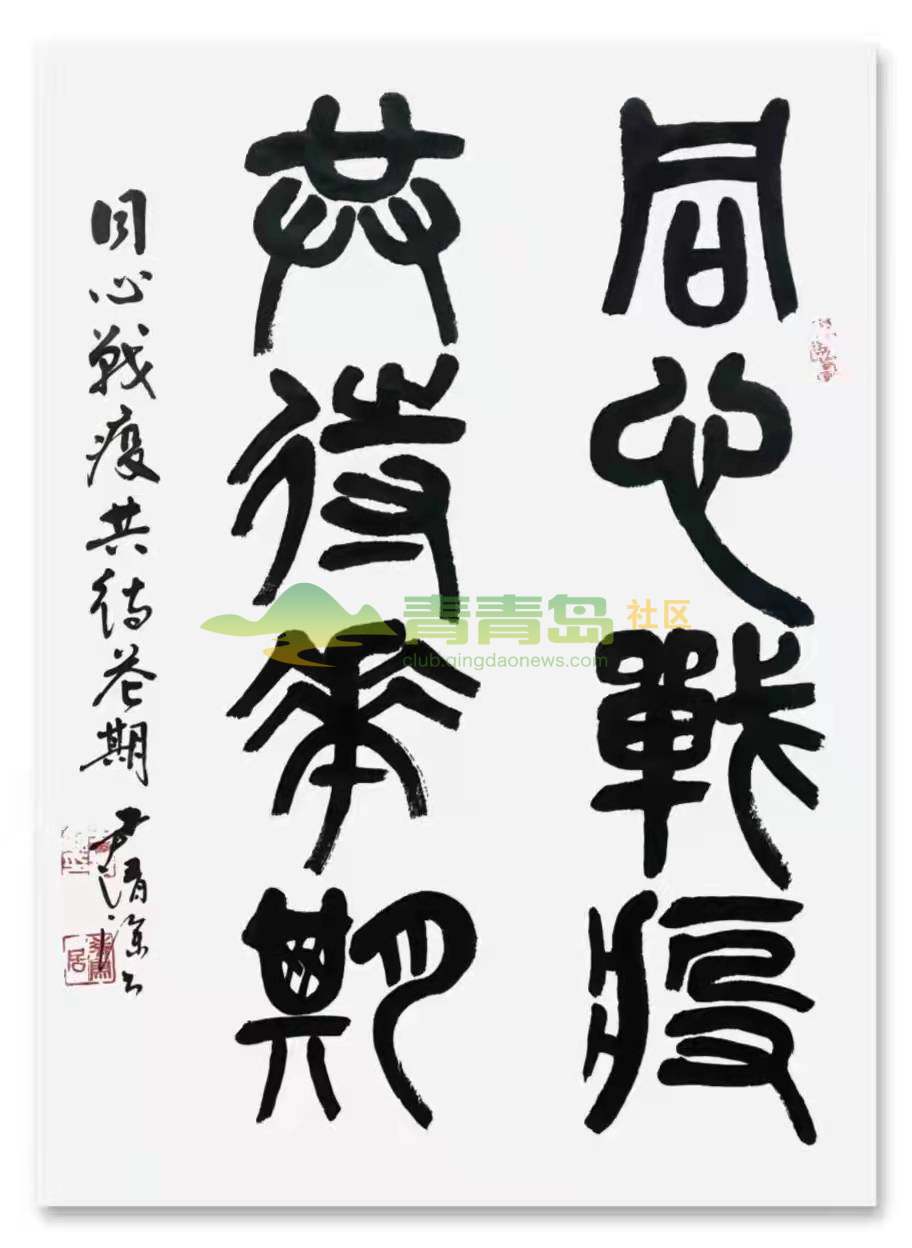 同心戰疫
共待華期
同心戰疫共待花期
青青岛社区
club.qingdaonews.com